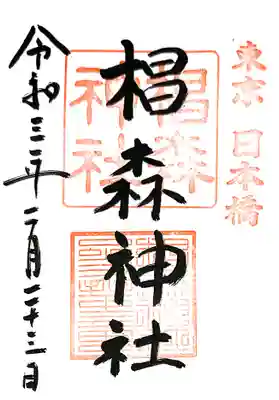 東京 日本橋
椙森
神社
椙森神社
令和三年二月二十三日